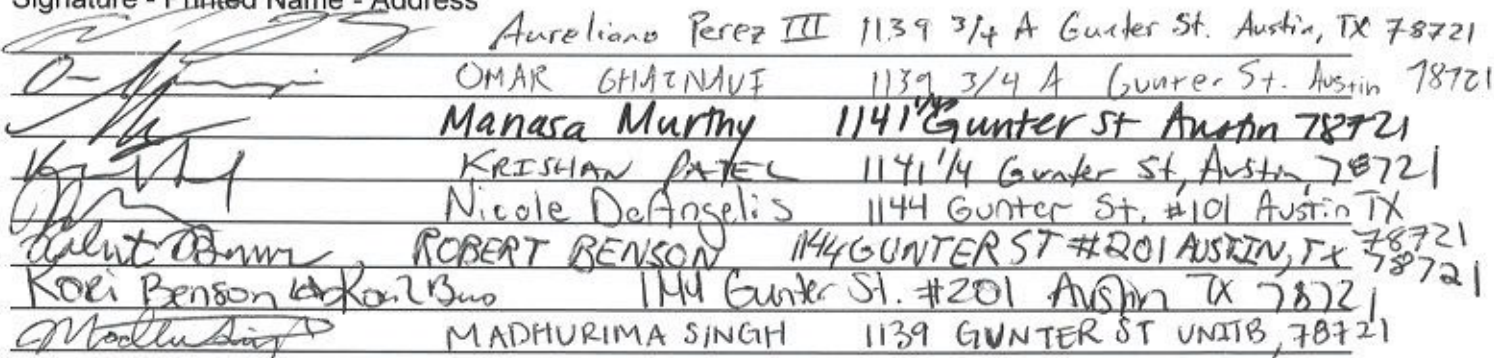 Signature - Printed Name - Address
Aureliano Perez III 1139 3/4 A Gunter St. Austin, TX 78721
OMAR GHAZNAVI 1139 3/4 A Gunter St. Austin 78721
Manasa Murthy 1141 1/4 Gunter St Austin 78721
KRISHAN PATEL 1141 1/4 Gunter St, Austin, 78721
Nicole DeAngelis 1144 Gunter St. #101 Austin TX 78721
ROBERT BENSON 1144 GUNTER ST #201 AUSTIN, TX 78721
Kori Benson 1144 Gunter St. #201 Austin TX 78721
MADHURIMA SINGH 1139 GUNTER ST UNIT B, 78721